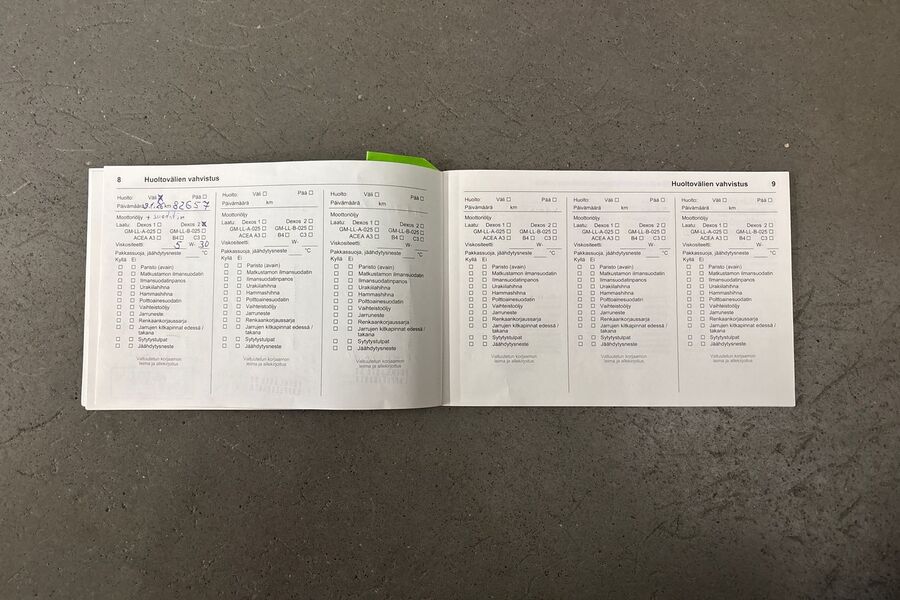 8 Huoltovälien vahvistus
Huolto: Väli ☒ Pää ☐
Päivämäärä km 82657
Moottoriöljy + suodatin
Laatu: Dexos 1 ☐ Dexos 2 ☒
GM-LL-A-025 ☐ GM-LL-B-025 ☐
ACEA A3 ☐ B4 ☐ C3 ☐
Viskositeetti: 5 W- 30
Pakkassuoja, jäähdytysneste °C
Kyllä Ei
☐ ☐ Paristo (avain)
☐ ☐ Matkustamon ilmansuodatin
☐ ☐ Ilmansuodatinpanos
☐ ☐ Urakiilahihna
☐ ☐ Hammashihna
☐ ☐ Polttoainesuodatin
☐ ☐ Vaihteistoöljy
☐ ☐ Jarruneste
☐ ☐ Renkaankorjaussarja
☐ ☐ Jarrujen kitkapinnat edessä /
takana
☐ ☐ Sytytystulpat
☐ ☐ Jäähdytysneste
Valtuutetun korjaamon
leima ja allekirjoitus
Huolto: Väli ☐ Pää ☐
Päivämäärä km
Moottoriöljy
Laatu: Dexos 1 ☐ Dexos 2 ☐
GM-LL-A-025 ☐ GM-LL-B-025 ☐
ACEA A3 ☐ B4 ☐ C3 ☐
Viskositeetti: W-
Pakkassuoja, jäähdytysneste °C
Kyllä Ei
☐ ☐ Paristo (avain)
☐ ☐ Matkustamon ilmansuodatin
☐ ☐ Ilmansuodatinpanos
☐ ☐ Urakiilahihna
☐ ☐ Hammashihna
☐ ☐ Polttoainesuodatin
☐ ☐ Vaihteistoöljy
☐ ☐ Jarruneste
☐ ☐ Renkaankorjaussarja
☐ ☐ Jarrujen kitkapinnat edessä /
takana
☐ ☐ Sytytystulpat
☐ ☐ Jäähdytysneste
Valtuutetun korjaamon
leima ja allekirjoitus
Huolto: Väli ☐ Pää ☐
Päivämäärä km
Moottoriöljy
Laatu: Dexos 1 ☐ Dexos 2 ☐
GM-LL-A-025 ☐ GM-LL-B-025 ☐
ACEA A3 ☐ B4 ☐ C3 ☐
Viskositeetti: W-
Pakkassuoja, jäähdytysneste °C
Kyllä Ei
☐ ☐ Paristo (avain)
☐ ☐ Matkustamon ilmansuodatin
☐ ☐ Ilmansuodatinpanos
☐ ☐ Urakiilahihna
☐ ☐ Hammashihna
☐ ☐ Polttoainesuodatin
☐ ☐ Vaihteistoöljy
☐ ☐ Jarruneste
☐ ☐ Renkaankorjaussarja
☐ ☐ Jarrujen kitkapinnat edessä /
takana
☐ ☐ Sytytystulpat
☐ ☐ Jäähdytysneste
Valtuutetun korjaamon
leima ja allekirjoitus
Huoltovälien vahvistus 9
Huolto: Väli ☐ Pää ☐
Päivämäärä km
Moottoriöljy
Laatu: Dexos 1 ☐ Dexos 2 ☐
GM-LL-A-025 ☐ GM-LL-B-025 ☐
ACEA A3 ☐ B4 ☐ C3 ☐
Viskositeetti: W-
Pakkassuoja, jäähdytysneste °C
Kyllä Ei
☐ ☐ Paristo (avain)
☐ ☐ Matkustamon ilmansuodatin
☐ ☐ Ilmansuodatinpanos
☐ ☐ Urakiilahihna
☐ ☐ Hammashihna
☐ ☐ Polttoainesuodatin
☐ ☐ Vaihteistoöljy
☐ ☐ Jarruneste
☐ ☐ Renkaankorjaussarja
☐ ☐ Jarrujen kitkapinnat edessä /
takana
☐ ☐ Sytytystulpat
☐ ☐ Jäähdytysneste
Valtuutetun korjaamon
leima ja allekirjoitus
Huolto: Väli ☐ Pää ☐
Päivämäärä km
Moottoriöljy
Laatu: Dexos 1 ☐ Dexos 2 ☐
GM-LL-A-025 ☐ GM-LL-B-025 ☐
ACEA A3 ☐ B4 ☐ C3 ☐
Viskositeetti: W-
Pakkassuoja, jäähdytysneste °C
Kyllä Ei
☐ ☐ Paristo (avain)
☐ ☐ Matkustamon ilmansuodatin
☐ ☐ Ilmansuodatinpanos
☐ ☐ Urakiilahihna
☐ ☐ Hammashihna
☐ ☐ Polttoainesuodatin
☐ ☐ Vaihteistoöljy
☐ ☐ Jarruneste
☐ ☐ Renkaankorjaussarja
☐ ☐ Jarrujen kitkapinnat edessä /
takana
☐ ☐ Sytytystulpat
☐ ☐ Jäähdytysneste
Valtuutetun korjaamon
leima ja allekirjoitus
Huolto: Väli ☐ Pää ☐
Päivämäärä km
Moottoriöljy
Laatu: Dexos 1 ☐ Dexos 2 ☐
GM-LL-A-025 ☐ GM-LL-B-025 ☐
ACEA A3 ☐ B4 ☐ C3 ☐
Viskositeetti: W-
Pakkassuoja, jäähdytysneste °C
Kyllä Ei
☐ ☐ Paristo (avain)
☐ ☐ Matkustamon ilmansuodatin
☐ ☐ Ilmansuodatinpanos
☐ ☐ Urakiilahihna
☐ ☐ Hammashihna
☐ ☐ Polttoainesuodatin
☐ ☐ Vaihteistoöljy
☐ ☐ Jarruneste
☐ ☐ Renkaankorjaussarja
☐ ☐ Jarrujen kitkapinnat edessä /
takana
☐ ☐ Sytytystulpat
☐ ☐ Jäähdytysneste
Valtuutetun korjaamon
leima ja allekirjoitus